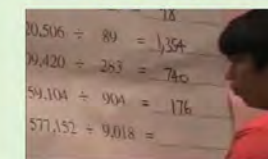 78
20,506 ÷ 89 = 1,354
09,420 ÷ 283 = 740
59,104 ÷ 904 = 176
577,152 ÷ 9,018 =